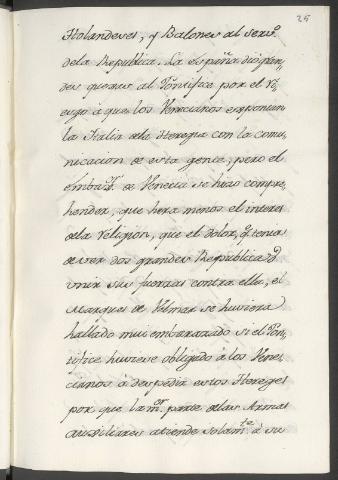 25
Holandeses, y Balones al serv.º
dela Republica. La españa dio gran
des quexas al Pontifice por el
à que los Venecianos exponian
la Italia dela Heregia con la comu
nicacion de esta gente, pero el
embax.ʳ de Venecia se hizo compre
hender, que hera menos el interes
dela religion, que el dolor, q̃ tenia
de ver dos grandes Republicas
vnir sus fuerzas contra ella, el
Marques de Vilmar se huviera
hallado mui embarazado si el Pon
tifice huviese obligado à los Vene
cianos à despedir estos Hereges
por que la m.ʳ parte delas Armas
auxiliares atiende solam.ᵗᵉ à su